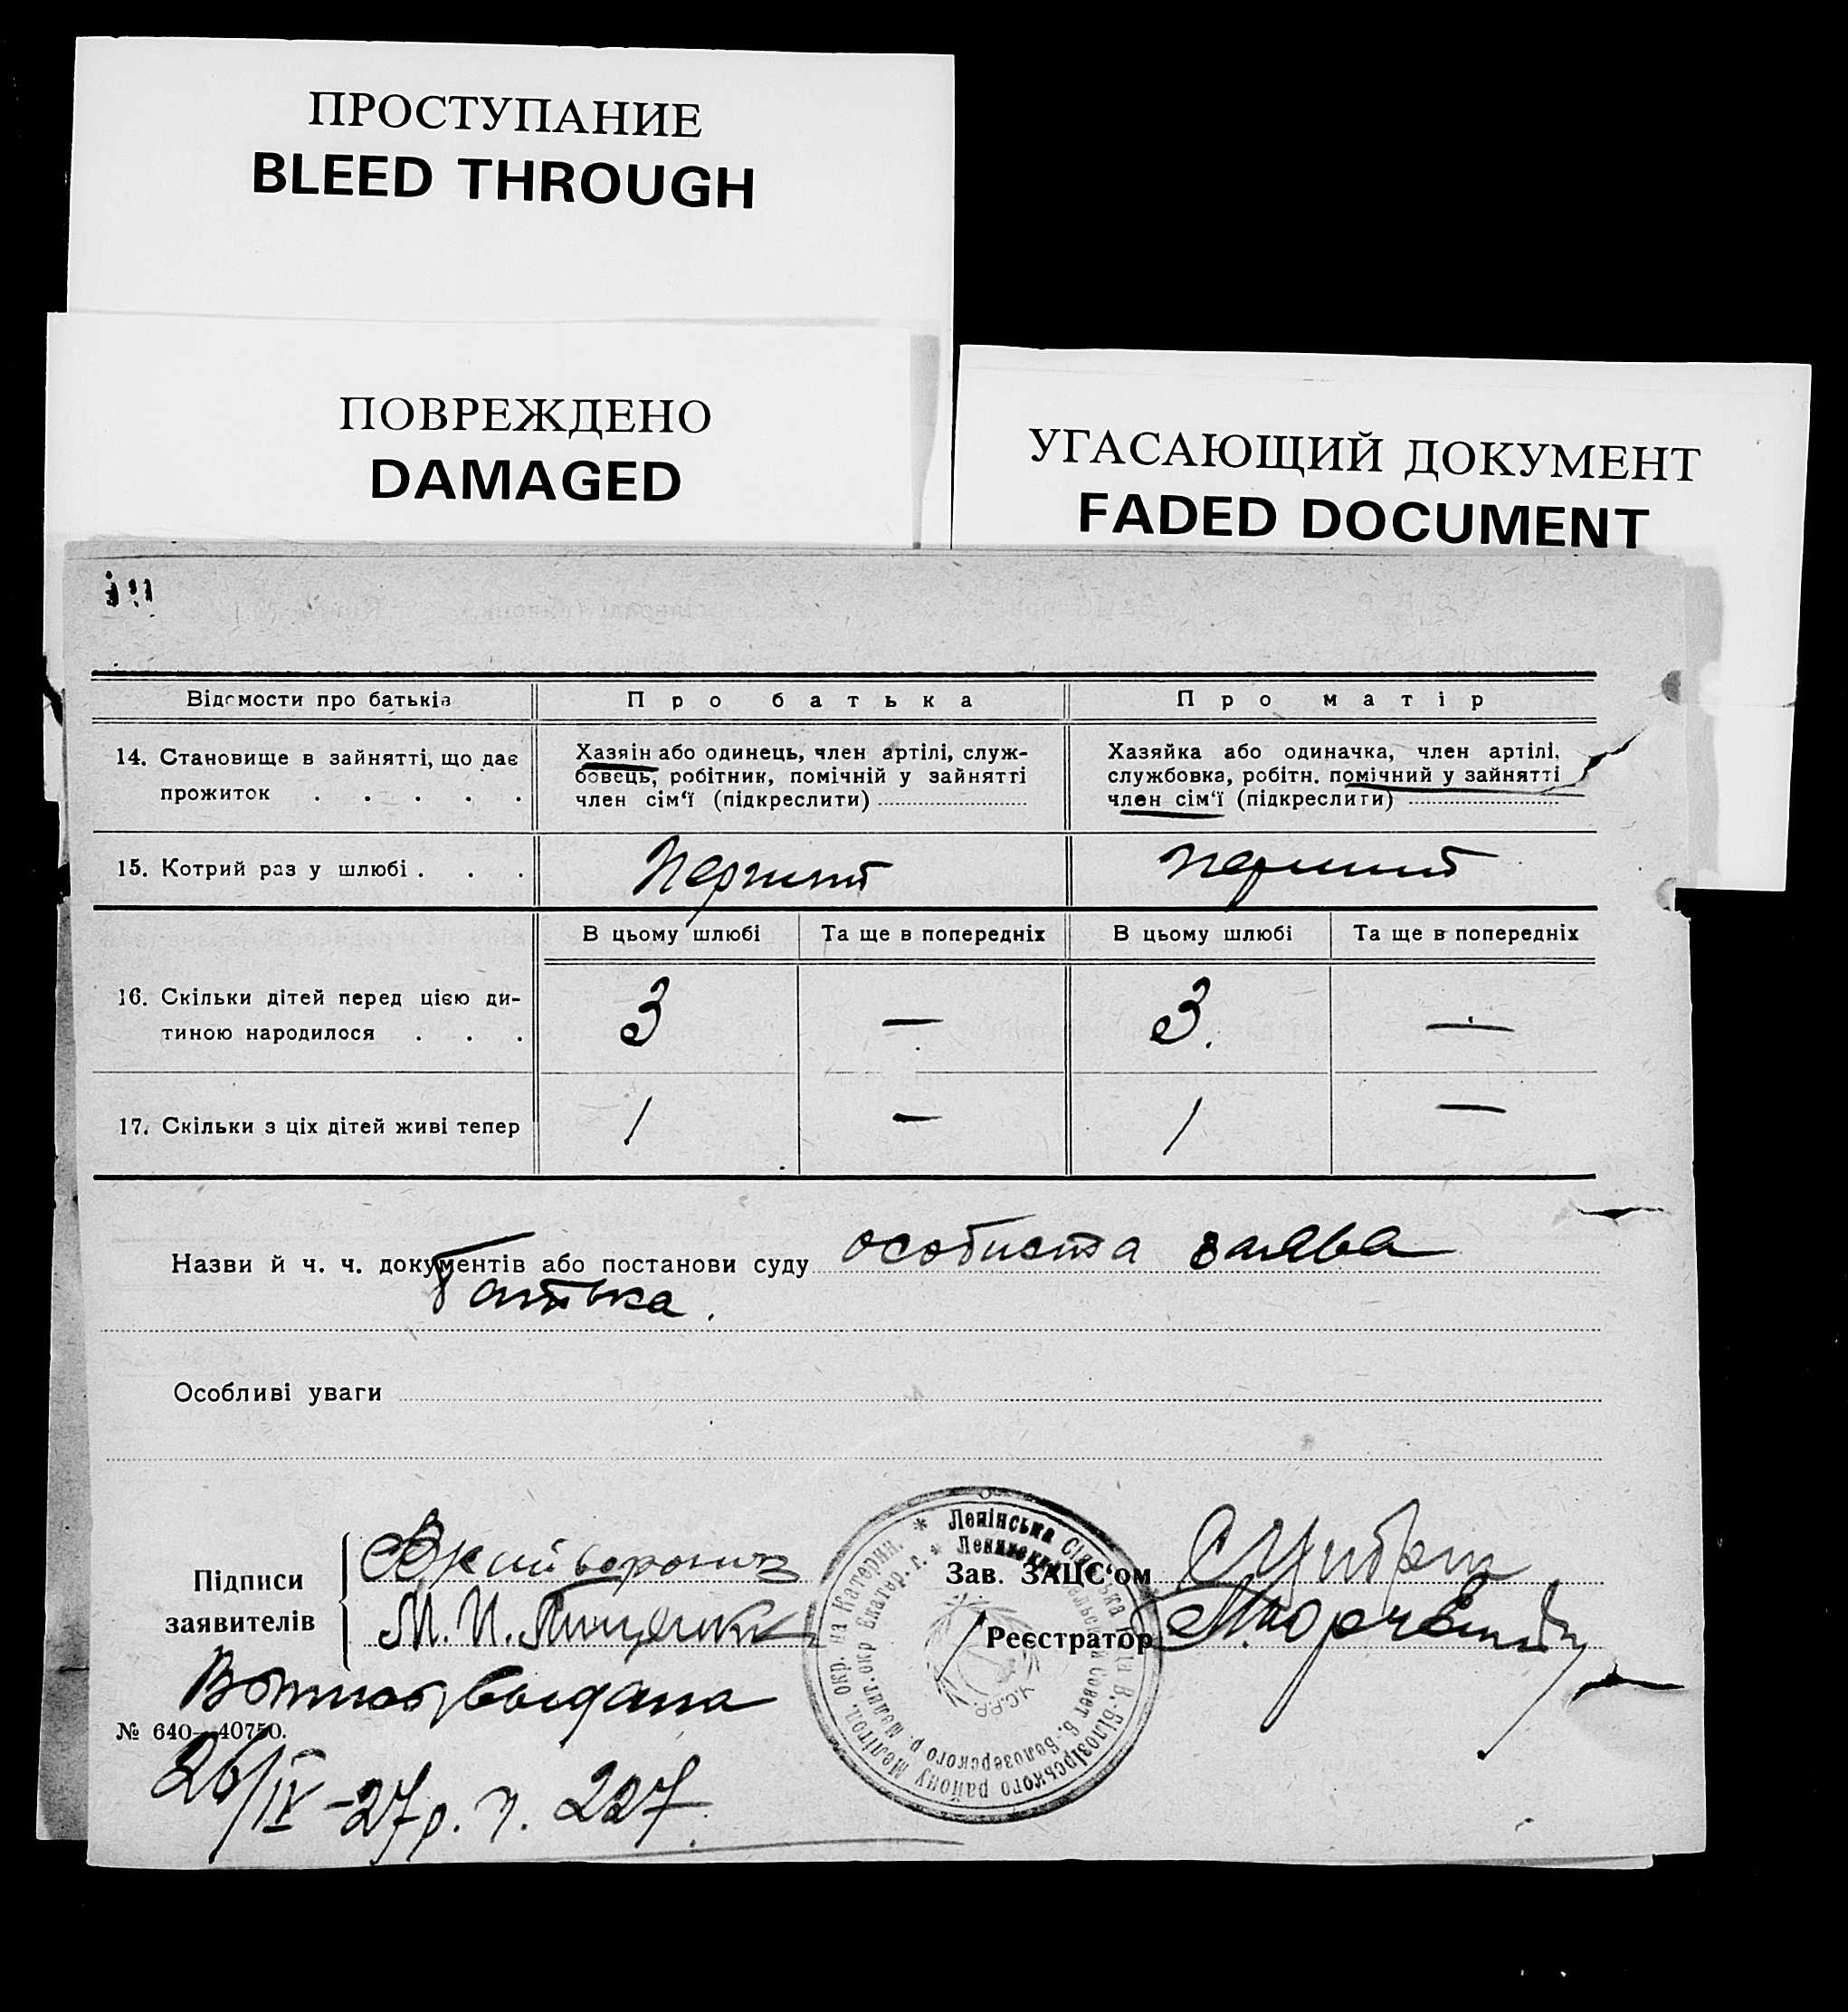 ПРОСТУПАНИЕ
BLEED THROUGH
ПОВРЕЖДЕНО
DAMAGED
УГАСАЮЩИЙ ДОКУМЕНТ
FADED DOCUMENT
Відомости про батьків
Про батька
Про матір
14. Становище в зайнятті, що дає
прожиток . . . . .
Хазяін або одинець, член артілі, служ-
бовець, робітник, помічній у зайнятті
член сім'ї (підкреслити)
Хазяйка або одиначка, член артілі,
службовка, робітн. помічний у зайнятті
член сім'ї (підкреслити)
15. Котрий раз у шлюбі . . .
Перший
перший
В цьому шлюбі
Та ще в попередніх
В цьому шлюбі
Та ще в попередніх
16. Скільки дітей перед цією ди-
тиною народилося . . .
3
—
3.
—
17. Скільки з ціх дітей живі тепер
1
—
1
—
Назви й ч. ч. документів або постанови суду особиста заява
батька.
Особливі уваги
Підписи
заявителів
М. И.
Зав. ЗАЦС'ом
Реєстратор
Ленінська Сільська Рада В.-Білозірського району Мелітоп. окр. на Катерин.
Белозерского р. Мелит. окр Екатер. г.
У.С.Р.Р.
выдана
№ 640—40750.
26/IV-27р. ч. 227.